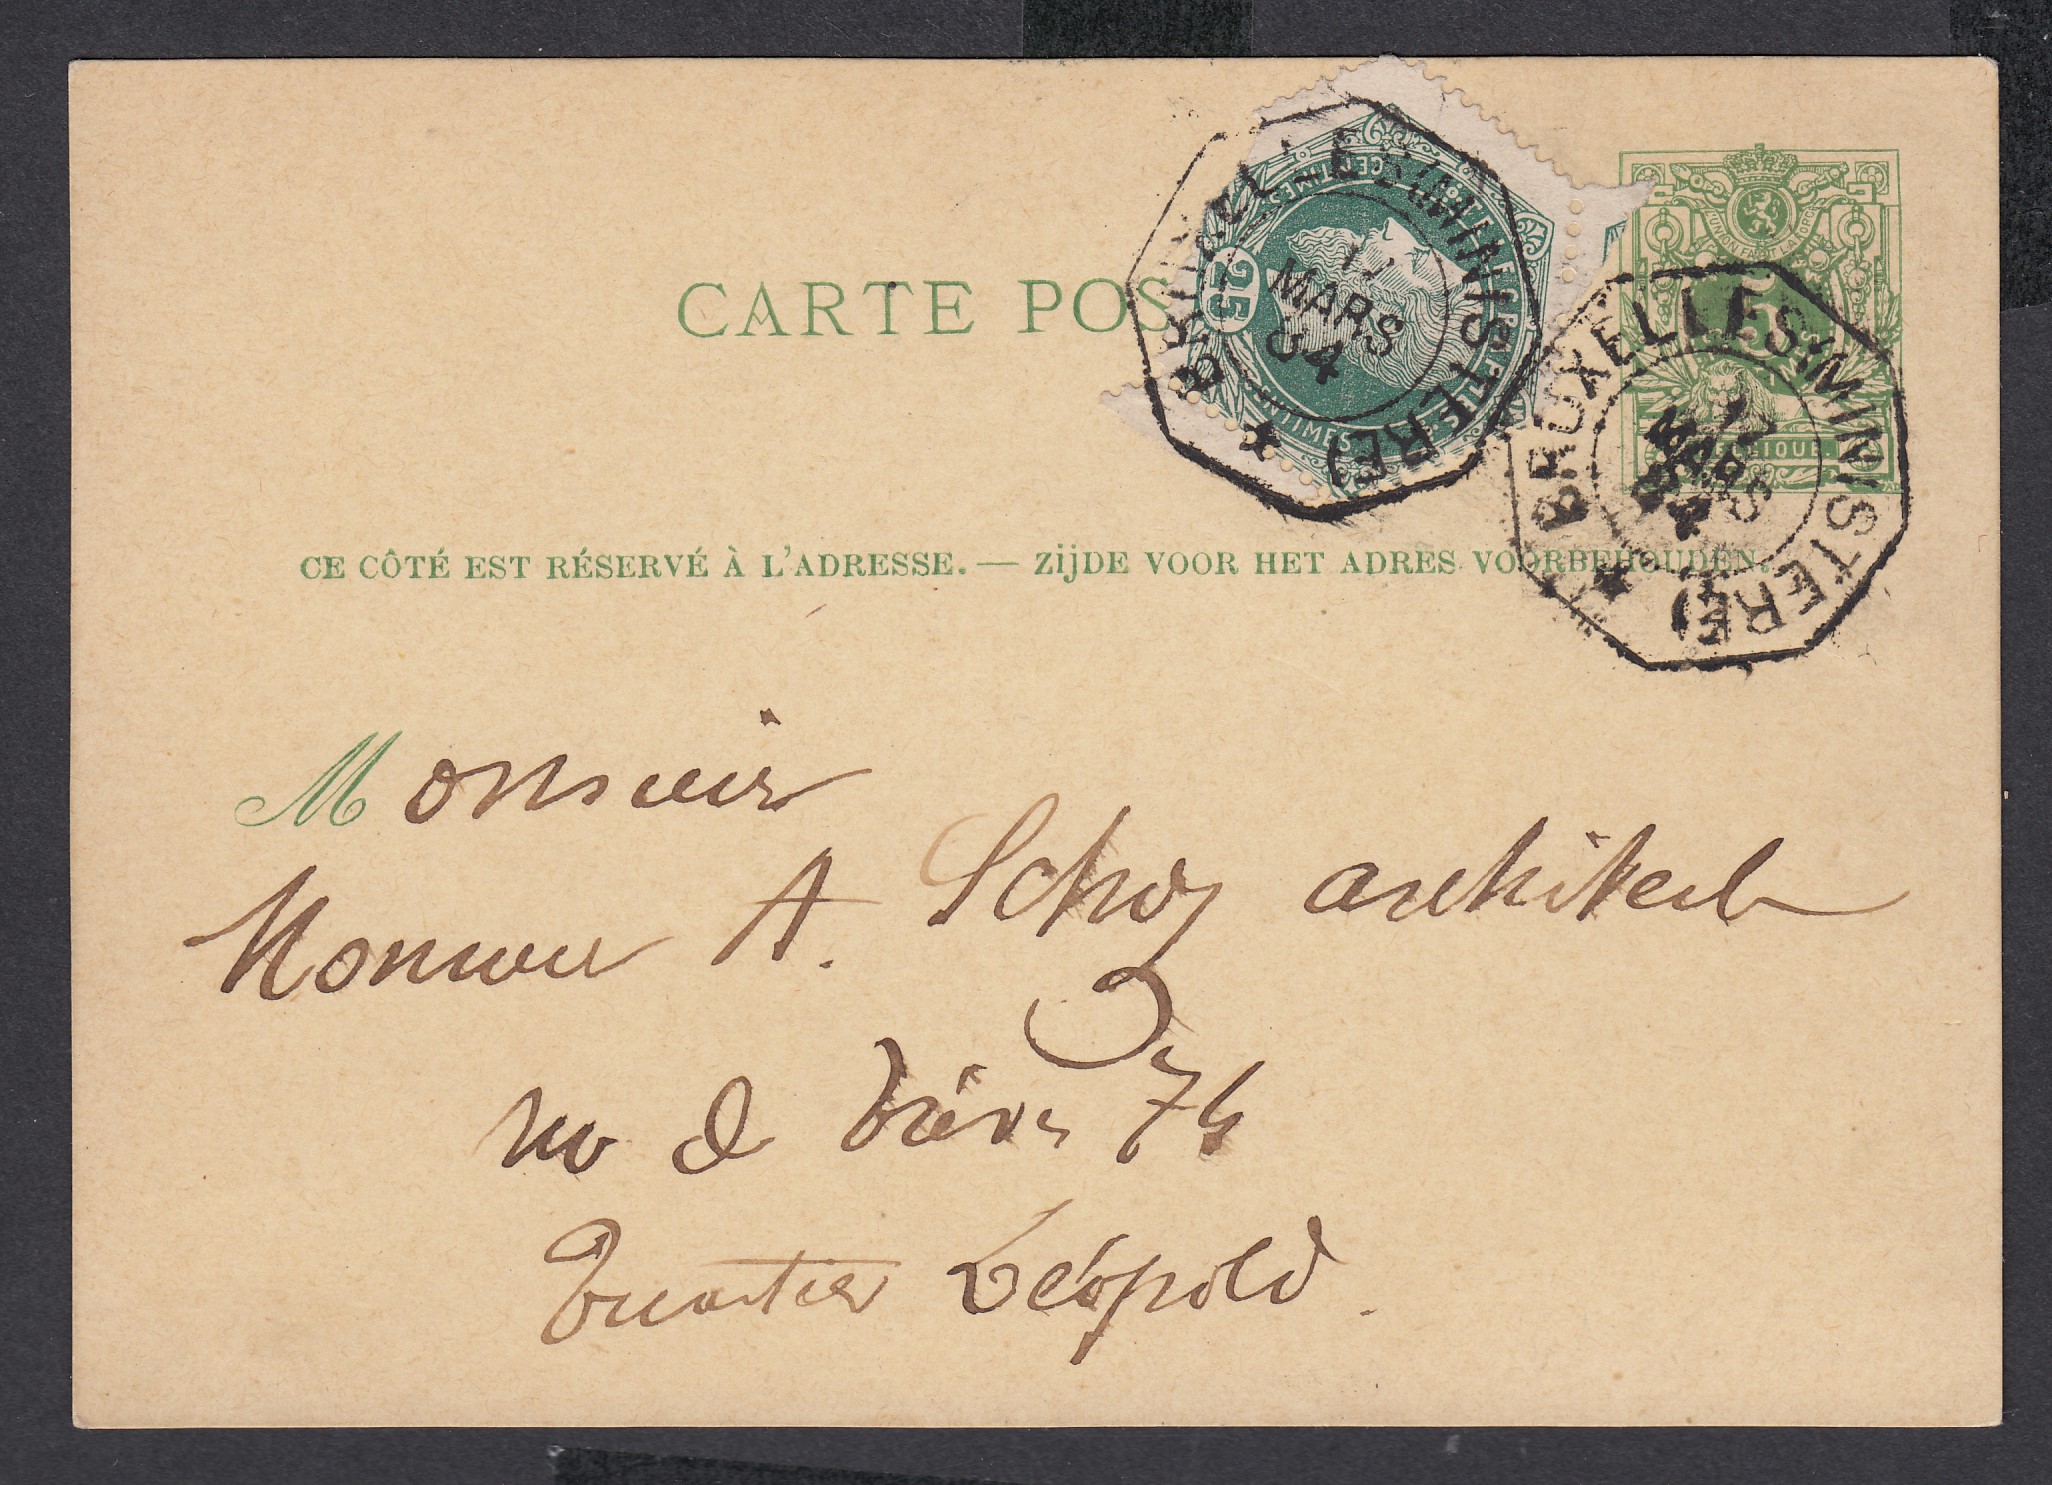 CARTE POS
25
CENTIMES
BRUXELLES (MINISTÈRE)
MARS
84
L'UNION FAIT LA FORCE
5
BELGIQUE.
BRUXELLES (MINISTÈRE)
12
MARS
CE CÔTÉ EST RÉSERVÉ À L'ADRESSE. — ZIJDE VOOR HET ADRES VOORBEHOUDEN.
Monsieur
Monsieur A. Schoy architecte
rue de Trèves 74
Quartier Léopold.